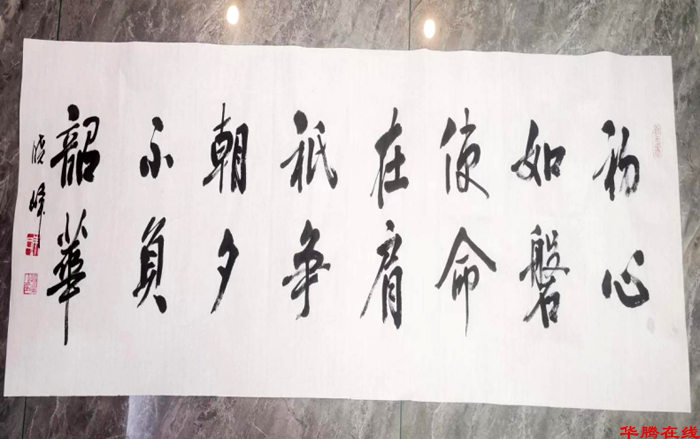 初心
如磐
使命
在肩
祇争
朝夕
不负
韶华
晓峰
华腾在线